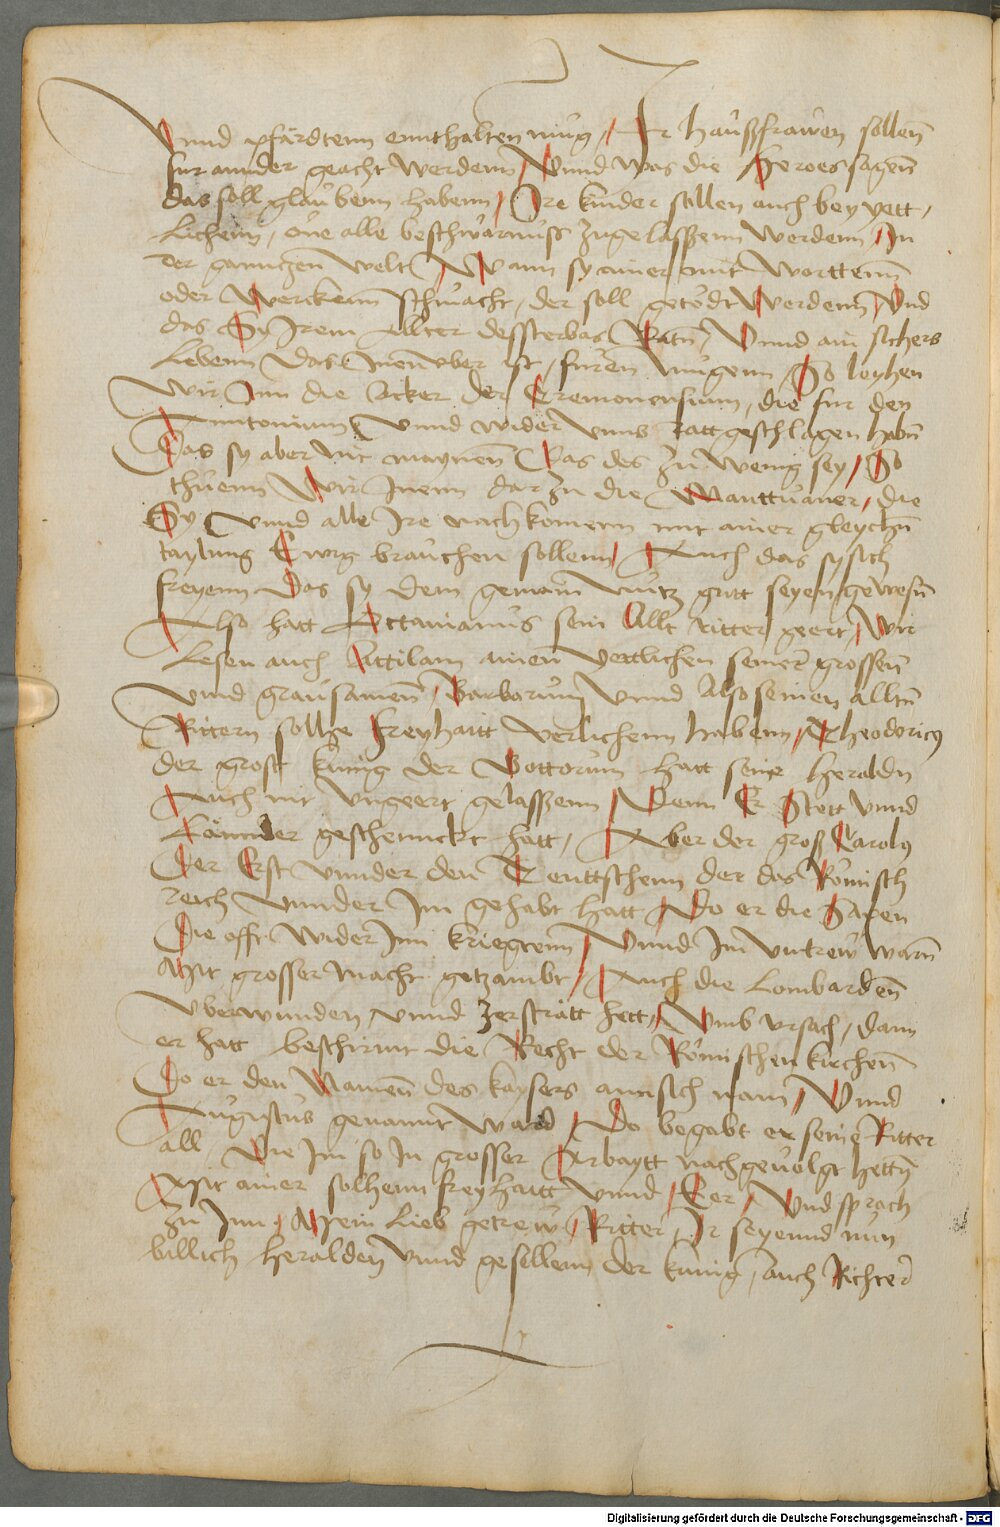 Vnnd pfärdtenn ennthalten müg / Ir haußfrawen sollen̄
fur annder geacht werdenn / Vnnd was die Heroes sagen̄
das soll glaubenn habenn / Ire kinder sollen auch bey yett,
lichenn, one alle beschwärnuss zugelasszenn werdenn / In
der ganntzen welt / Wann sy ainer mit wortten̄
oder Werckenn schmacht, der soll getödt werdenn / Vnd
das Sy Irem Allter dessterbas Ratn̄ / Vnnd ain sichers
Lebenn das Inen vber ist, füren mügenn / So leyhen
wir Inn die Äcker der Cremonensium, die fur den
Anntonium Vnnd wider vnns Rattgeschlagen habn̄
Das sy aber nit maynen̄ Das des zu wenig sey / So
thuenn Wir Inenn dar zu die Manttuaner, die
Sy Vnnd alle Ire nachkomenn mit ainer gleychn̄
taylung Ewig brauchen sollenn / Auch das sy sich
freyenn Das sy dem gemain Nutz gutt seyen gewesn̄
Also hatt Octauianus sein Allt ritter geert, Wir
Lesen auch Attilam ainen vettlichen seiner grossen̄
vnnd grausamen̄, Barbarum Vnnd Also seinen alltn̄
Rittern sollhe Freyhaitt verlichenn habenn, Theodoricus
der grost kunig der Gottorum hatt seine heraldn̄
Auch nit vngeert gelasszenn / Denn Er Stett vnnd
Lännder geschennckt hatt, Aber der groß Carolus
Der Erst vnnder den Teuttschenn der das Römisch
reich vnnder Im gehabt hatt / Do er die Saxen
Die offt wider Inn kriegtenn / Vnnd Im vntrew warn̄
Mit grosser macht getzambt / Auch die Lombarden̄
vberwunden, vnnd zerstrått hett, Vmb vrsach, dann
er hatt beschirmt die Recht der Römischen kirchen̄
Do er den Namen̄ des kaysers ann sich nam / Vnnd
Augustus genannt ward / Do begabt er seine Ritter
all Die Im so In grosser Arbaytt nachgeuolgt hettn̄
Mit ainer solhenn freyhaitt vnnd / Eer / Vnd sprach
Zu Inn / Mein lieb getrew / Ritter, Ir seyennd nun
billich heralden vnnd gesellenn der kunig, auch Richter
Digitalisierung gefördert durch die Deutsche Forschungsgemeinschaft - DFG